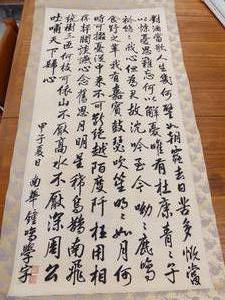 對酒當歌人生幾何譬如朝露去日苦多慨當
以慷憂思難忘何以解憂唯有杜康青々子
衿悠々我心但為君故沈吟至今呦々鹿鳴
食野之苹我有嘉賓鼓瑟吹笙明々如月何
時可掇憂從中來不可斷絕越陌度阡枉用相
存契闊談讌心念舊恩月明星稀烏鵲南飛
繞樹三匝何枝可依山不厭高水不厭深周公
吐哺天下歸心
甲子夏日 華鍾鳴學字